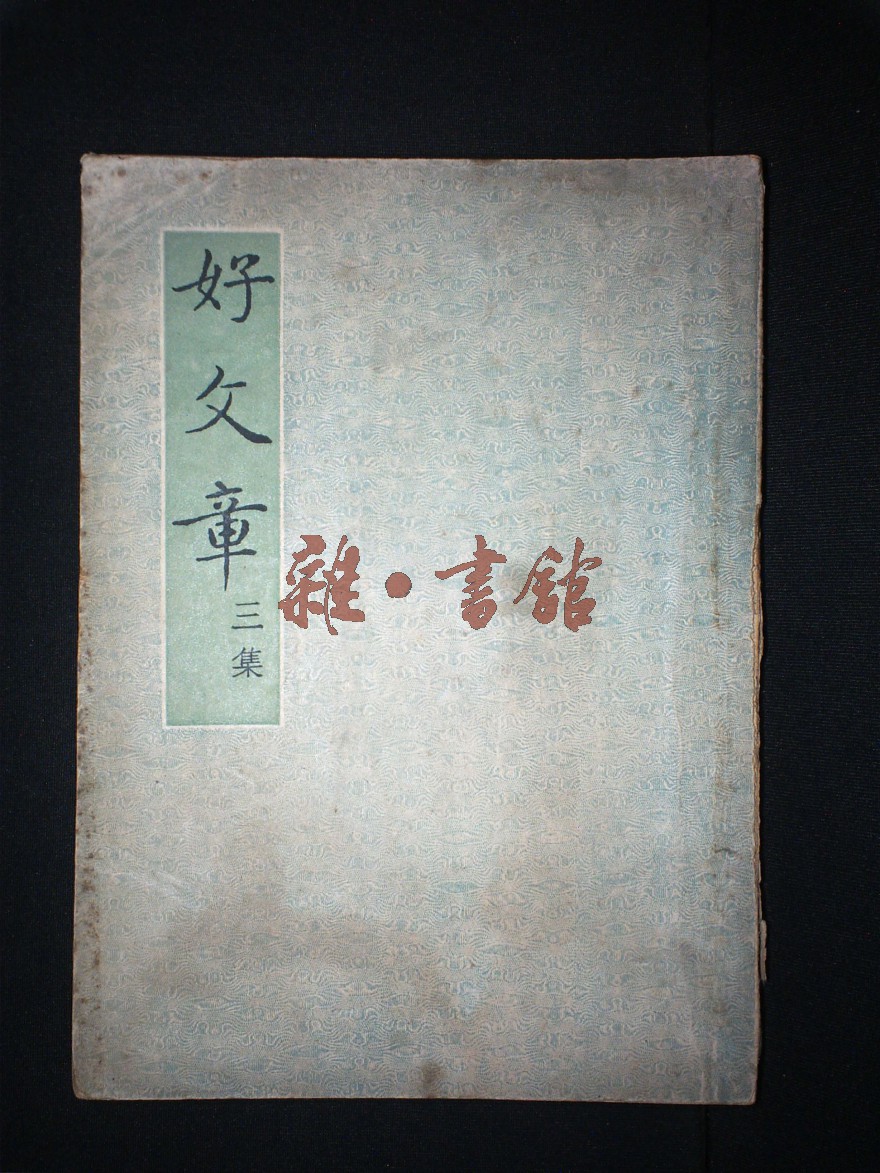 好文章
三集
雜·書館